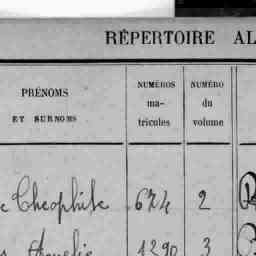 RÉPERTOIRE AL
PRÉNOMS
ET SURNOMS
NUMÉROS
ma-
tricules
NUMÉRO
du
volume
Théophile 674 2
1290 3